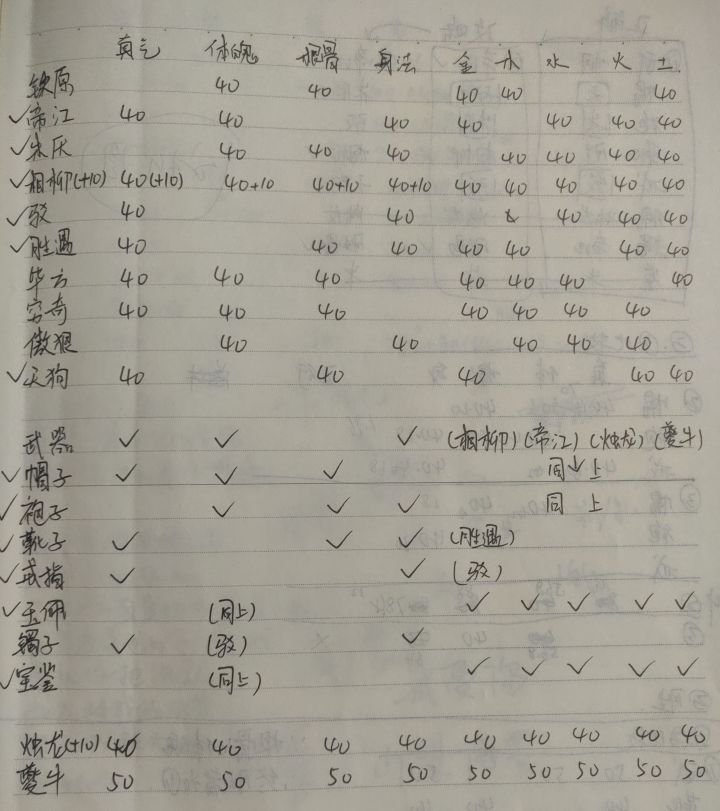 真气 体魄 根骨 身法 金 木 水 火 土
钦原 40 40 40 40 40
✓帝江 40 40 40 40 40 40 40
✓朱厌 40 40 40 40 40 40 40
✓相柳(+10) 40(+10) 40+10 40+10 40+10 40 40 40 40 40
✓驳 40 40 40 40 40
✓胜遇 40 40 40 40 40 40 40
毕方 40 40 40 40 40 40 40
穷奇 40 40 40 40 40 40 40
傲狠 40 40 40 40 40
✓天狗 40 40 40 40 40
武器 ✓ ✓ ✓ (相柳)(帝江)(烛龙)(夔牛)
✓帽子 ✓ ✓ ✓ 同上
✓袍子 ✓ ✓ ✓ 同上
✓靴子 ✓ ✓ ✓ (胜遇)
✓戒指 ✓ ✓ (驳)
✓玉佩 (同上) ✓ ✓ ✓ ✓ ✓
镯子 ✓ (驳) ✓
✓宝鉴 (同上) ✓ ✓ ✓ ✓ ✓
烛龙(+10) 40 40 40 40 40 40 40 40 40
夔牛 50 50 50 50 50 50 50 50 50